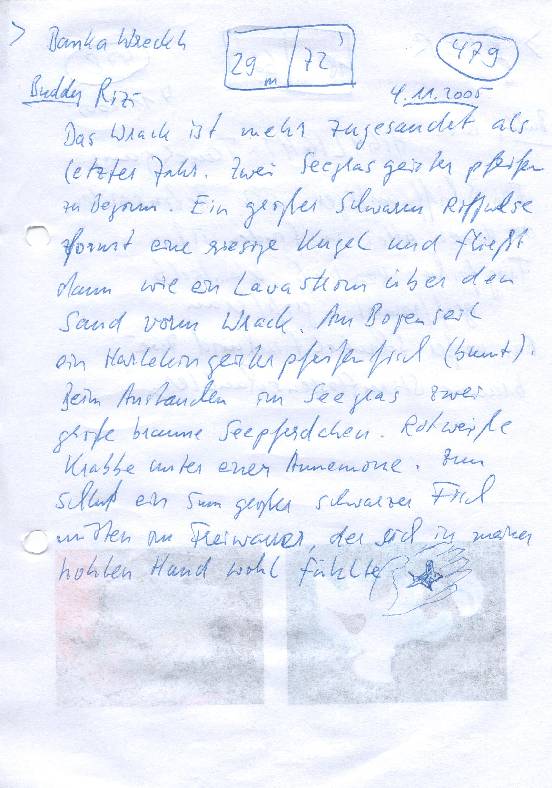 > Banka Wreckh
29 m | 72'
479
Buddy Rizi
4.11.2005
Das Wrack ist mehr zugesandet als
letztes Jahr. Zwei Seegrasgeisterpfeifen
zu Beginn. Ein großer Schwarm Riffwelse
formt eine riesige Kugel und fließt
dann wie ein Lavastrom über den
Sand vorm Wrack. Am Bojenseil
ein Harlekingeisterpfeifenfisch (bunt).
Beim Austauchen im Seegras zwei
große braune Seepferdchen. Rotweiße
Krabbe unter einer Annemone. Zum
Schluß ein 5mm großer schwarzer Fisch
mitten im Freiwasser, der sich in meiner
hohlen Hand wohl fühlte